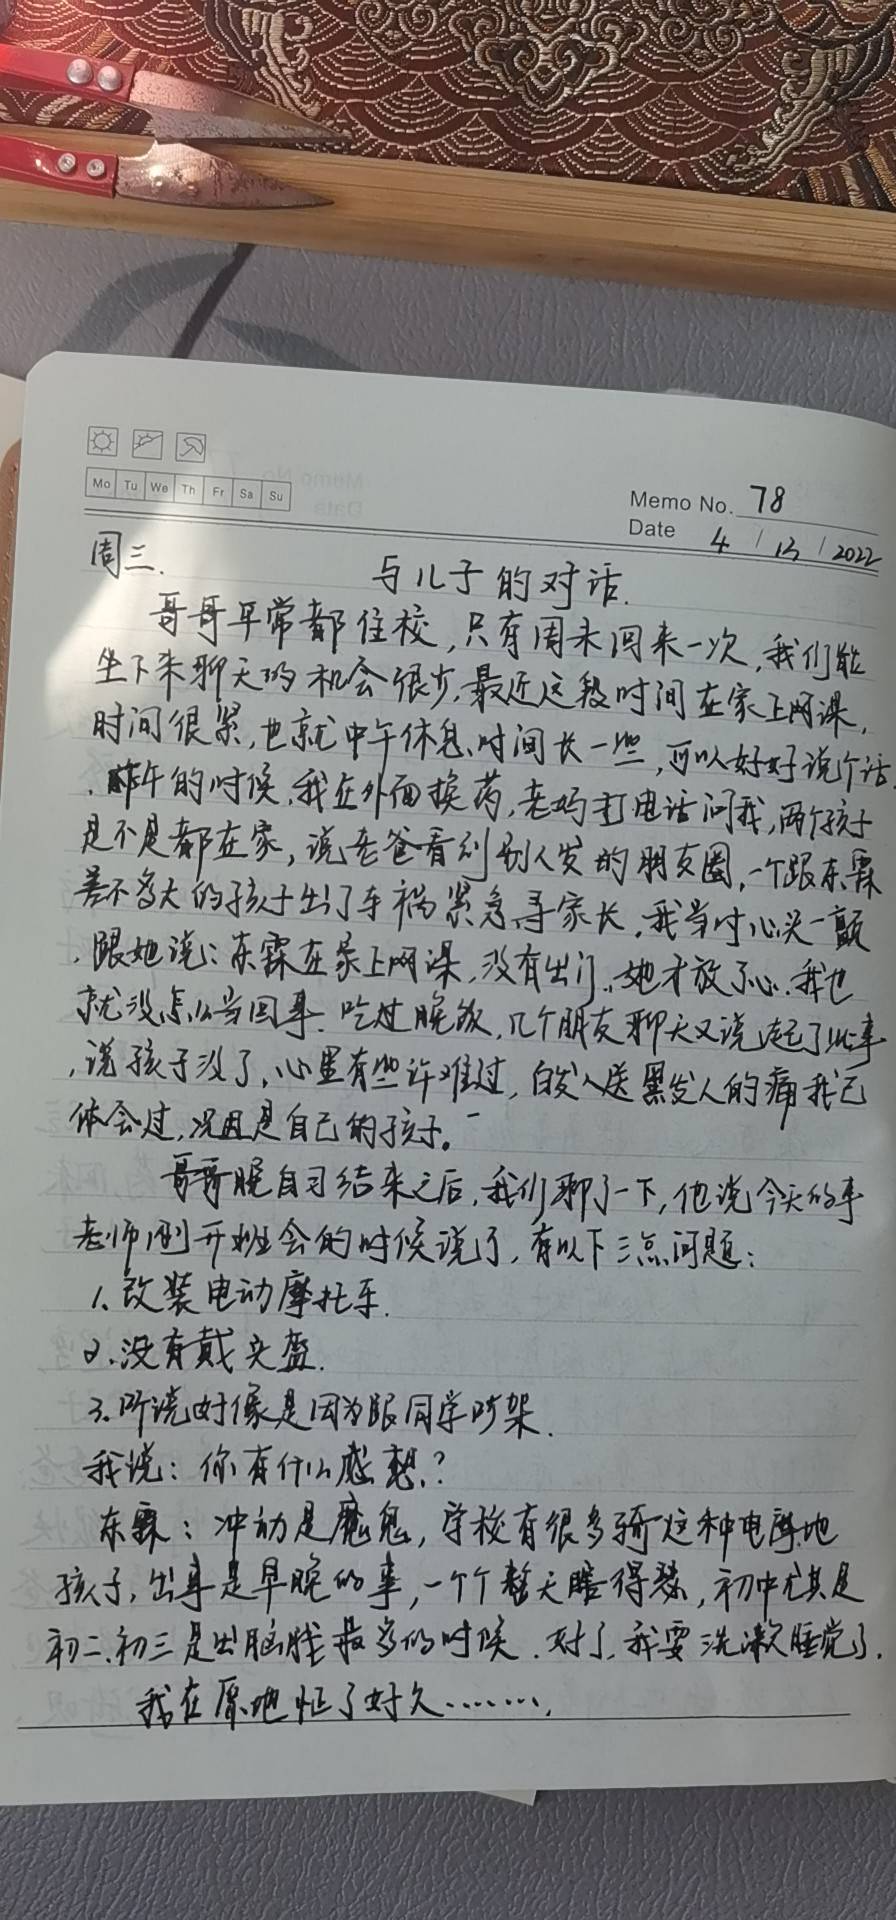 Mo Tu We Th Fr Sa Su
Memo No. 78
Date 4 / 13 / 2022
周三.
与儿子的对话.
哥哥平常都住校,只有周末回来一次,我们能
坐下来聊天的机会很少,最近这段时间在家上网课,
时间很紧,也就中午休息、时间长一些,可以好好说个话
,昨午的时候,我在外面换药,老妈打电话问我,两个孩子
是不是都在家,说老爸看到别人发的朋友圈,一个跟东霖
差不多大的孩子出了车祸紧急寻家长,我当时心头一颤
,跟她说:东霖在家上网课,没有出门,她才放了心.我也
就没怎么当回事.吃过晚饭,几个朋友聊天又说起了此事
,说孩子没了,心里有些许难过,白发人送黑发人的痛我已
体会过,况且是自己的孩子。
哥哥晚自习结束之后,我们聊了一下,他说今天的事
老师刚开班会的时候说了,有以下三点问题:
1.改装电动摩托车.
2.没有戴头盔.
3.听说好像是因为跟同学吵架.
我说:你有什么感想?
东霖:冲动是魔鬼,学校有很多骑这种电摩地
孩子,出事是早晚的事,一个个整天瞎得瑟,初中尤其是
初二、初三是出脑残最多的时候.对了,我要洗漱睡觉了.
我在原地怔了好久……..